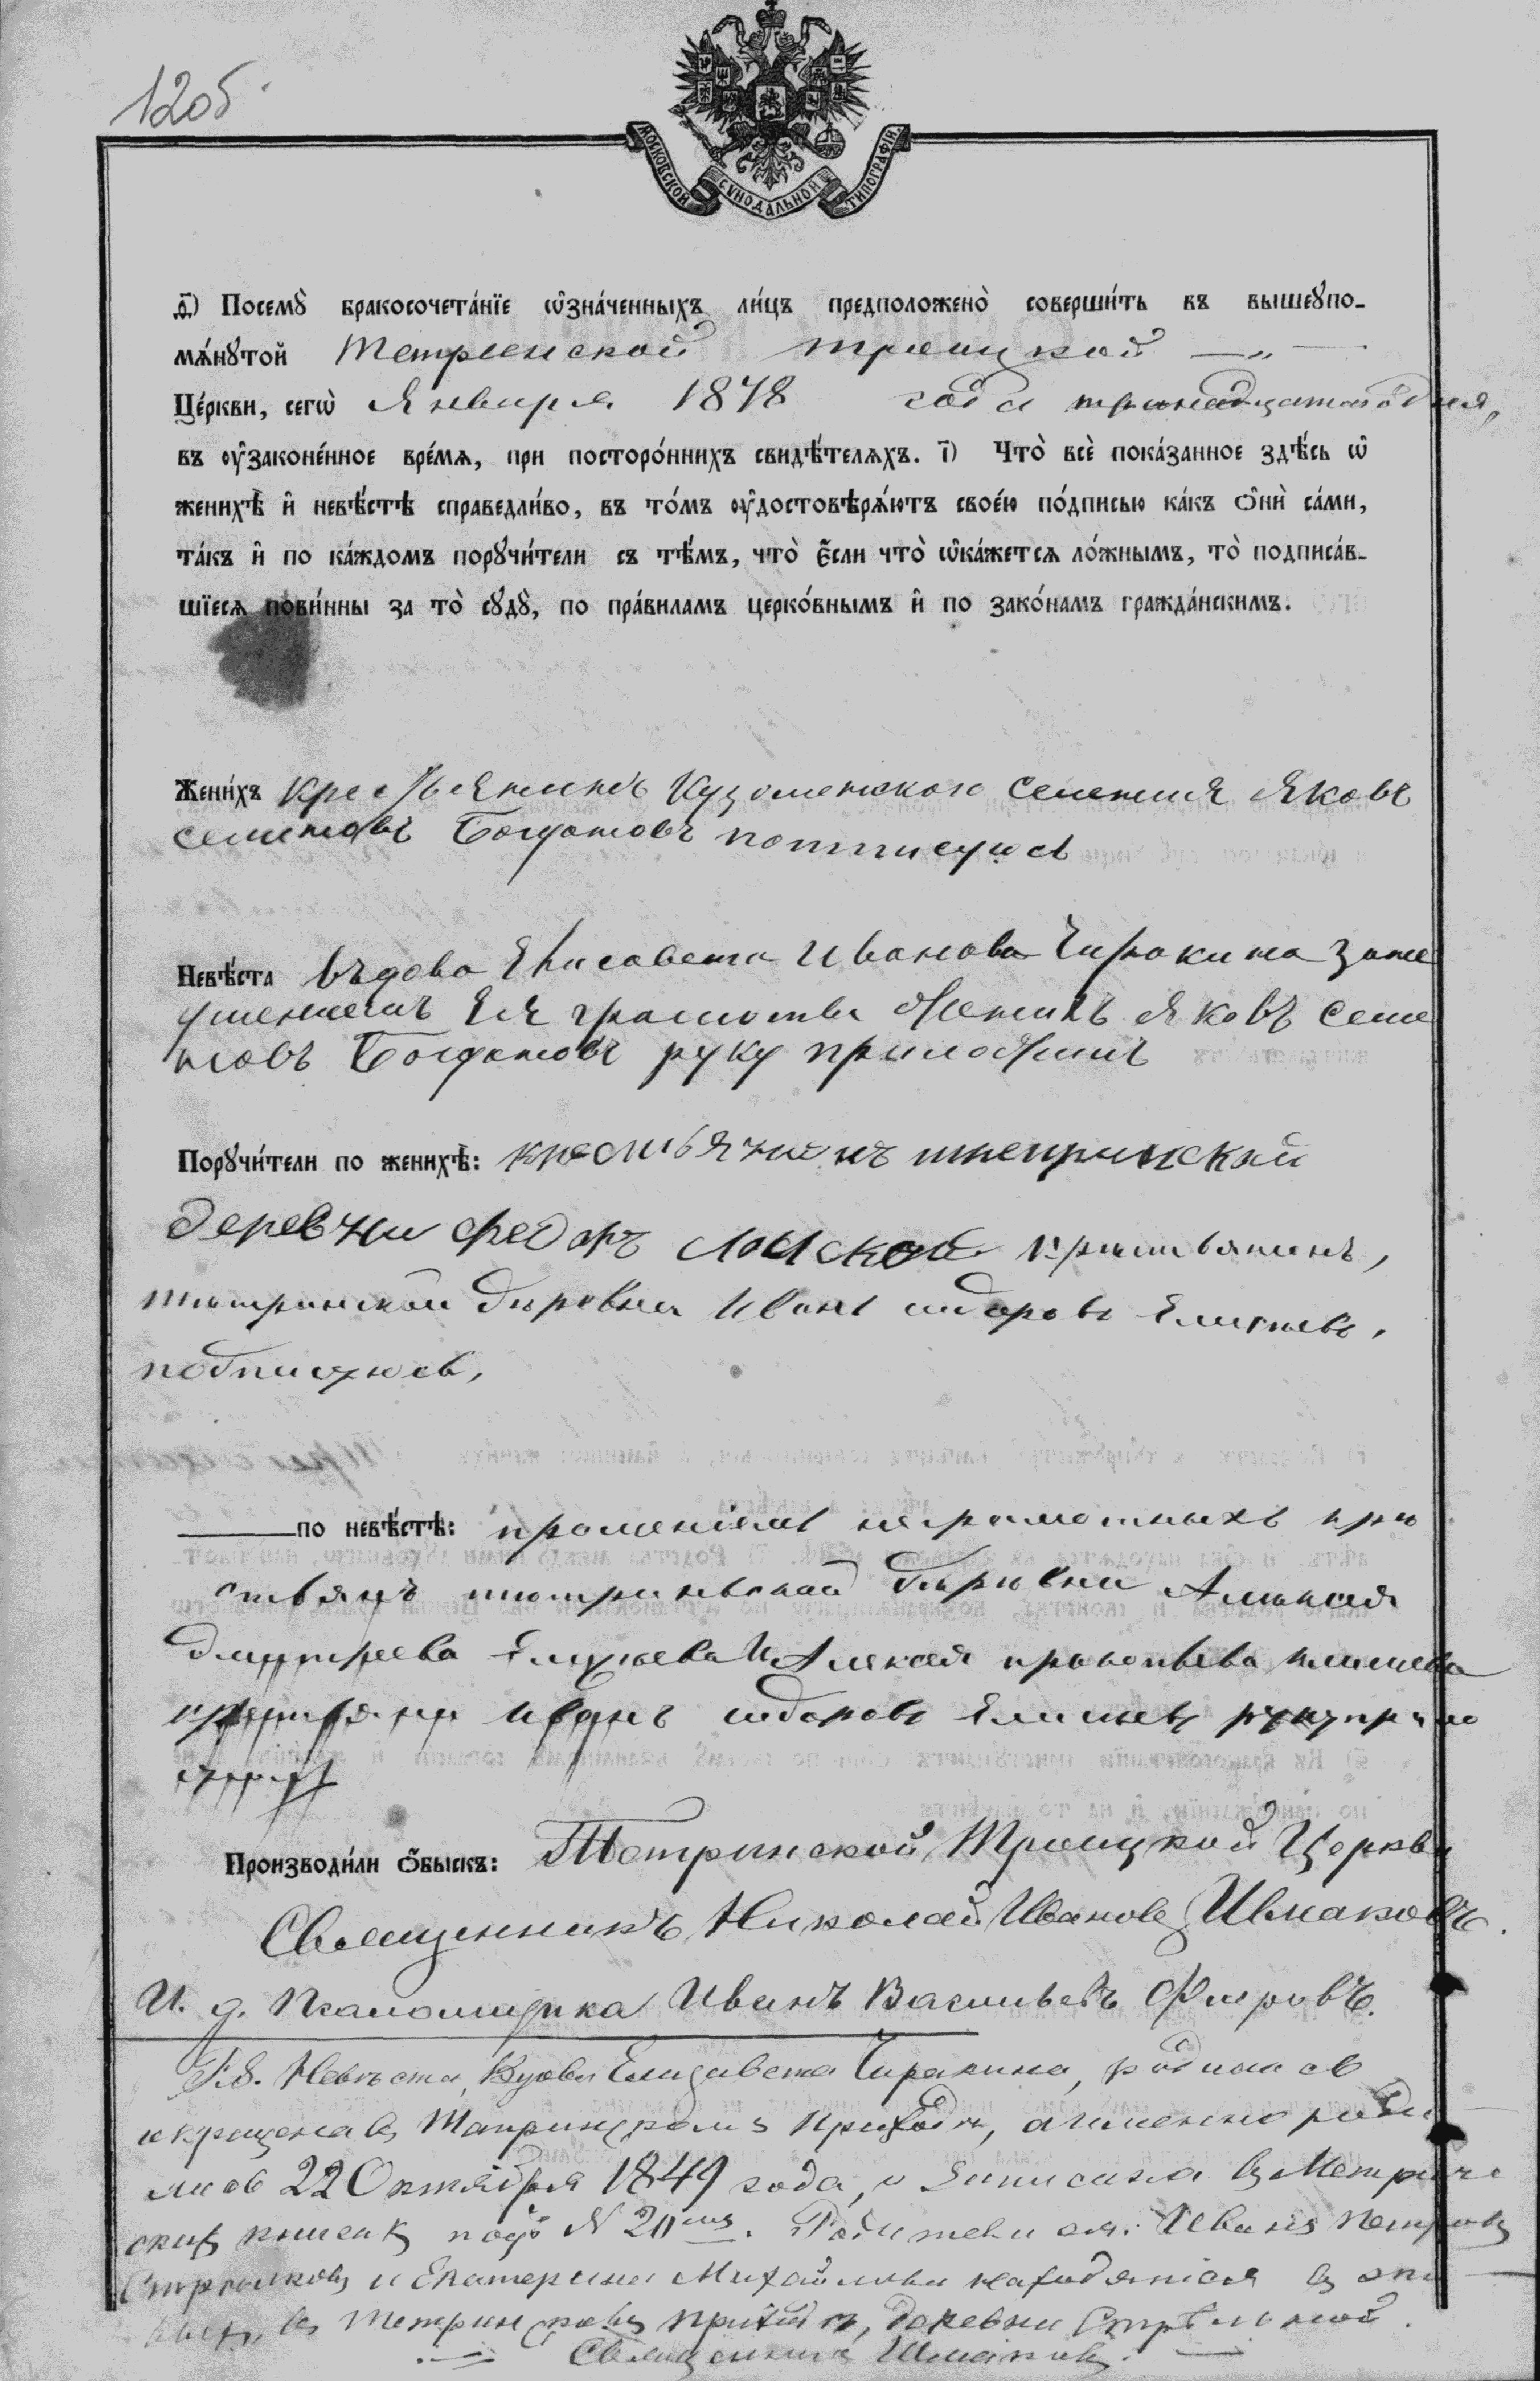 120б
МОСКОВСКОЙ СѴНОДАЛЬНОЙ ТИПОГРАФІИ
д҃) Посемꙋ̀ бракосочета́нїе ѡ҆зна́ченныхъ ли́цъ предположено̀ соверши́ть въ вышеꙋпо-
мѧ́нꙋтой Тетринской Троицкой — „ —
Це́ркви, сегѡ̀ Января 1878 года тринадцатаго дня,
въ ᲂу҆законе́нное вре́мѧ, при посторо́ннихъ свидѣ́телѧхъ. і҃) Что̀ всѐ пока́занное здѣ́сь ѡ҆
женихѣ̀ и҆ невѣ́стѣ справедли́во, въ то́мъ ᲂу҆достовѣрѧ́ютъ свое́ю по́дписью ка́къ ѻ҆нѝ са́ми,
та́къ и҆ по ка́ждомъ порꙋчи́тели съ тѣ́мъ, что̀ є҆́сли что̀ ѡ҆ка́жетсѧ ло́жнымъ, то̀ подписа́в-
шїесѧ пови́нны за то̀ сꙋдꙋ̀, по пра́виламъ церко́внымъ и҆ по зако́намъ гражда́нскимъ.
Жени́хъ крестьянинъ Кузоменского селения Яковъ
семеновъ Богдановъ потписуюсь
Невѣ́ста въдова Елисавета Иванова Чиракина заме
Ея грамоты женихъ Яковъ Семе
новъ Богдановъ руку приложилъ
Порꙋчи́тели по женихѣ̀: крестьянинъ тетринской
деревни федоръ крестьянинъ,
тетринской деревни Иванъ сидоровъ Елисеевъ,
подписуюсь,
по невѣ́стѣ: прошениемъ неграмотныхъ кре
стьянъ тетринской деревни Алексея
дмитреева Елисеева И Алексея прокопьева
крестьянинъ Иванъ сидоровъ Елисеевъ руку прило
жилъ
Производи́ли ѻ҆́быскъ: Тетринской Троицкой Церкви
Священникъ Николай Ивановъ Шмаковъ.
И. д. Псаломщика Иванъ Васильевъ Фировъ.
P.S. Невѣста, Вдова Елизавета Чиракина, родилась
и крещена въ Тетринскомъ приходѣ, а именно роди
лась 22 Октября 1849 года, и записана въ Метриче
скихъ книгахъ подъ № 20мъ. Родители ея: Иванъ Петровъ
Стрѣлковъ и Екатерина Михайлова находятся въ
въ Тетринскомъ приходѣ, деревни Стрѣльной.
Священникъ Шмаковъ.